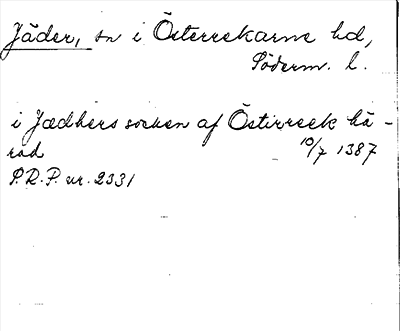 Jäder, sn i Österrekarne hd,
Söderm. l.
i Jædhers socken af Östirreek hä-
rad 10/7 1387
P.R.P. nr. 2331